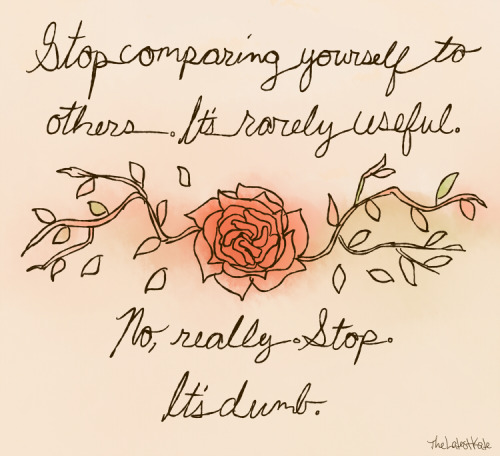 Stop comparing yourself to
others. It's rarely useful.
No, really. Stop.
It's dumb.
TheLatestKate